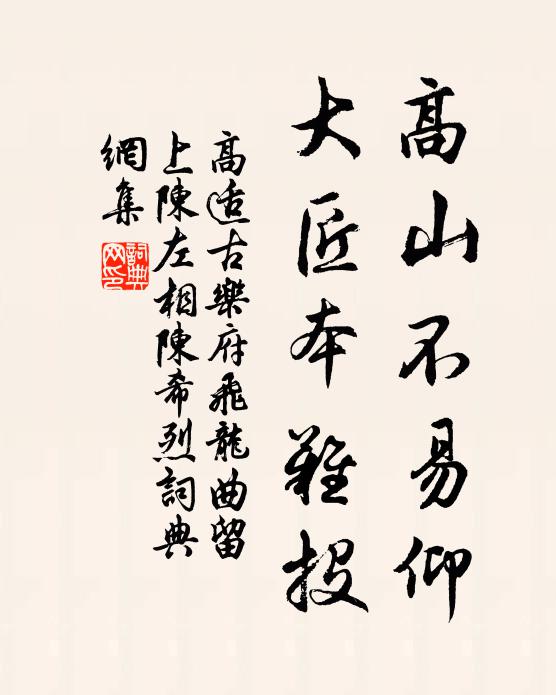 高山不易仰
大匠本難投
高适古樂府飛龍曲留
上陳左相陳希烈詞典
網集
詞典
网印